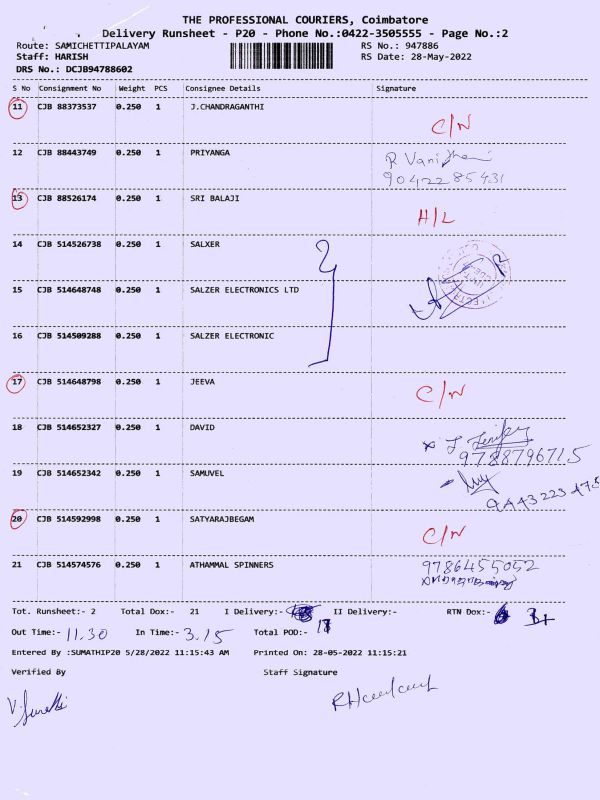 THE PROFESSIONAL COURIERS, Coimbatore
Delivery Runsheet - P20 - Phone No.:0422-3505555 - Page No.:2
Route: SAMICHETTIPALAYAM RS No.: 947886
Staff: HARISH RS Date: 28-May-2022
DRS No.: DCJB94788602
S No Consignment No Weight PCS Consignee Details Signature
11 CJB 88373537 0.250 1 J.CHANDRAGANTHI
C/N
12 CJB 88443749 0.250 1 PRIYANGA
R
90422 85431
13 CJB 88526174 0.250 1 SRI BALAJI
H/L
14 CJB 514526738 0.250 1 SALXER
15 CJB 514648748 0.250 1 SALZER ELECTRONICS LTD
16 CJB 514509288 0.250 1 SALZER ELECTRONIC
17 CJB 514648798 0.250 1 JEEVA
C/N
18 CJB 514652327 0.250 1 DAVID
9788796715
19 CJB 514652342 0.250 1 SAMUVEL
20 CJB 514592998 0.250 1 SATYARAJBEGAM
C/N
21 CJB 514574576 0.250 1 ATHAMMAL SPINNERS
9786455052
Tot. Runsheet:- 2 Total Dox:- 21 I Delivery:- II Delivery:- RTN Dox:-
Out Time:- 11.30 In Time:- 3.15 Total POD:-
Entered By :SUMATHIP20 5/28/2022 11:15:43 AM Printed On: 28-05-2022 11:15:21
Verified By Staff Signature